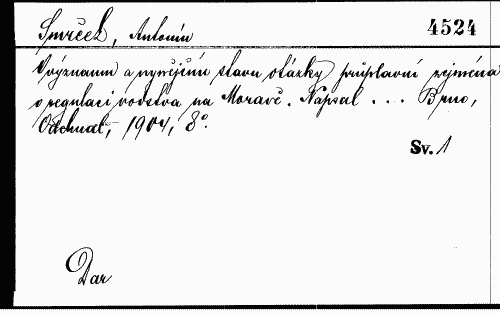 Smrček, Antonín
4524
O významu a nynějším stavu otázky průplavní zejména
o regulaci vodstva na Moravě. Napsal ... Brno,
Odehnal, 1904, 8°.
Sv. 1
Dar